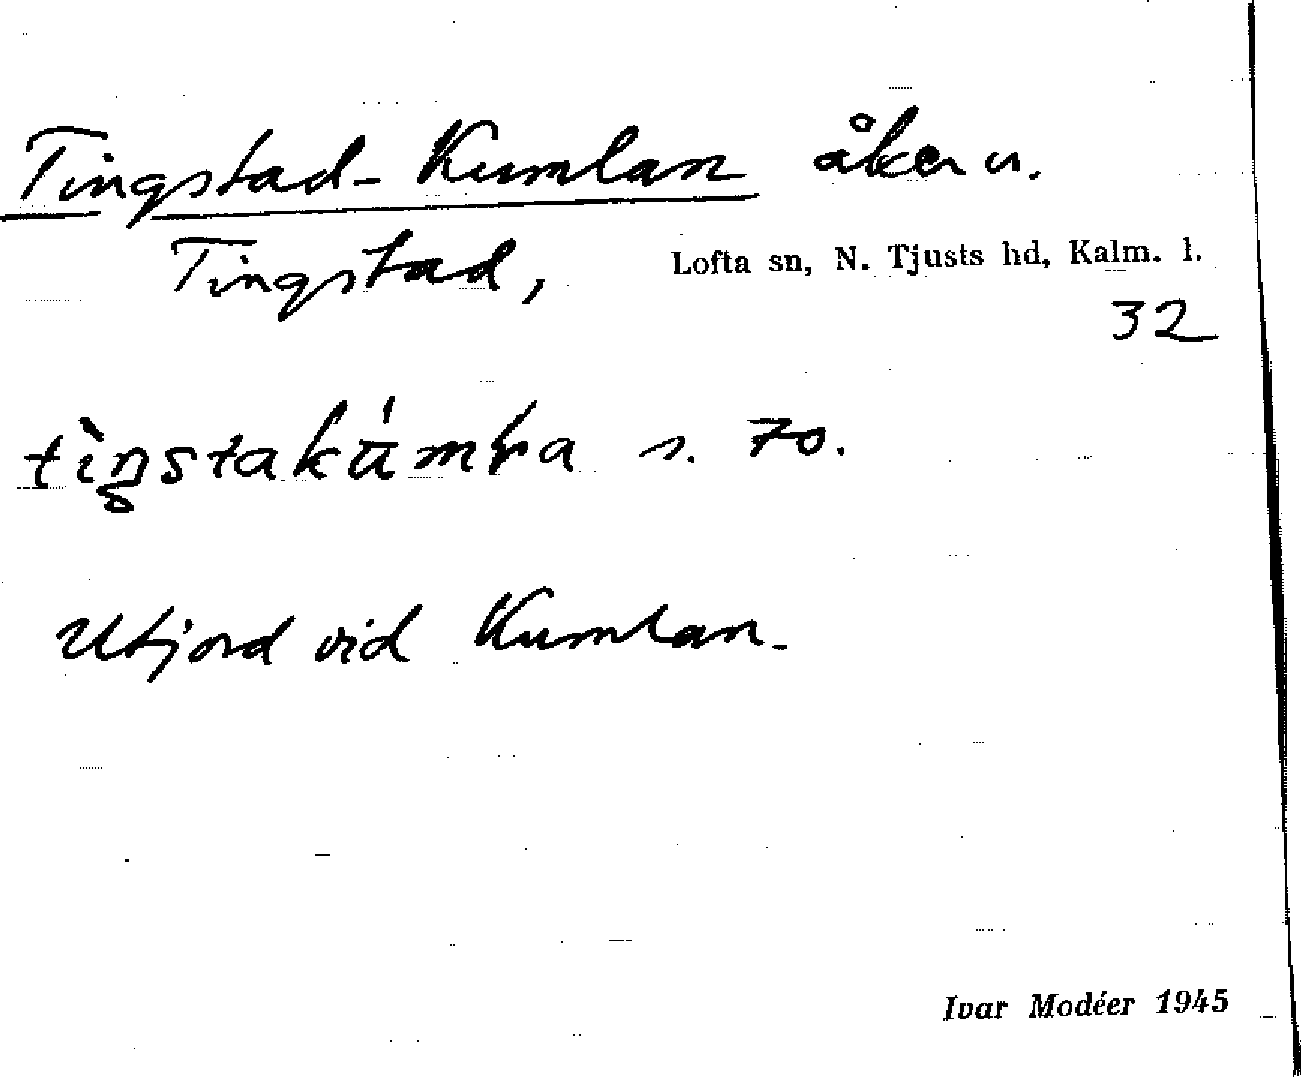 Tingstad-Kumlan åker u.
Tingstad, Lofta sn, N. Tjusts hd, Kalm. l.
32
s. 70.
Utjord vid Kumlan.
Ivar Modéer 1945